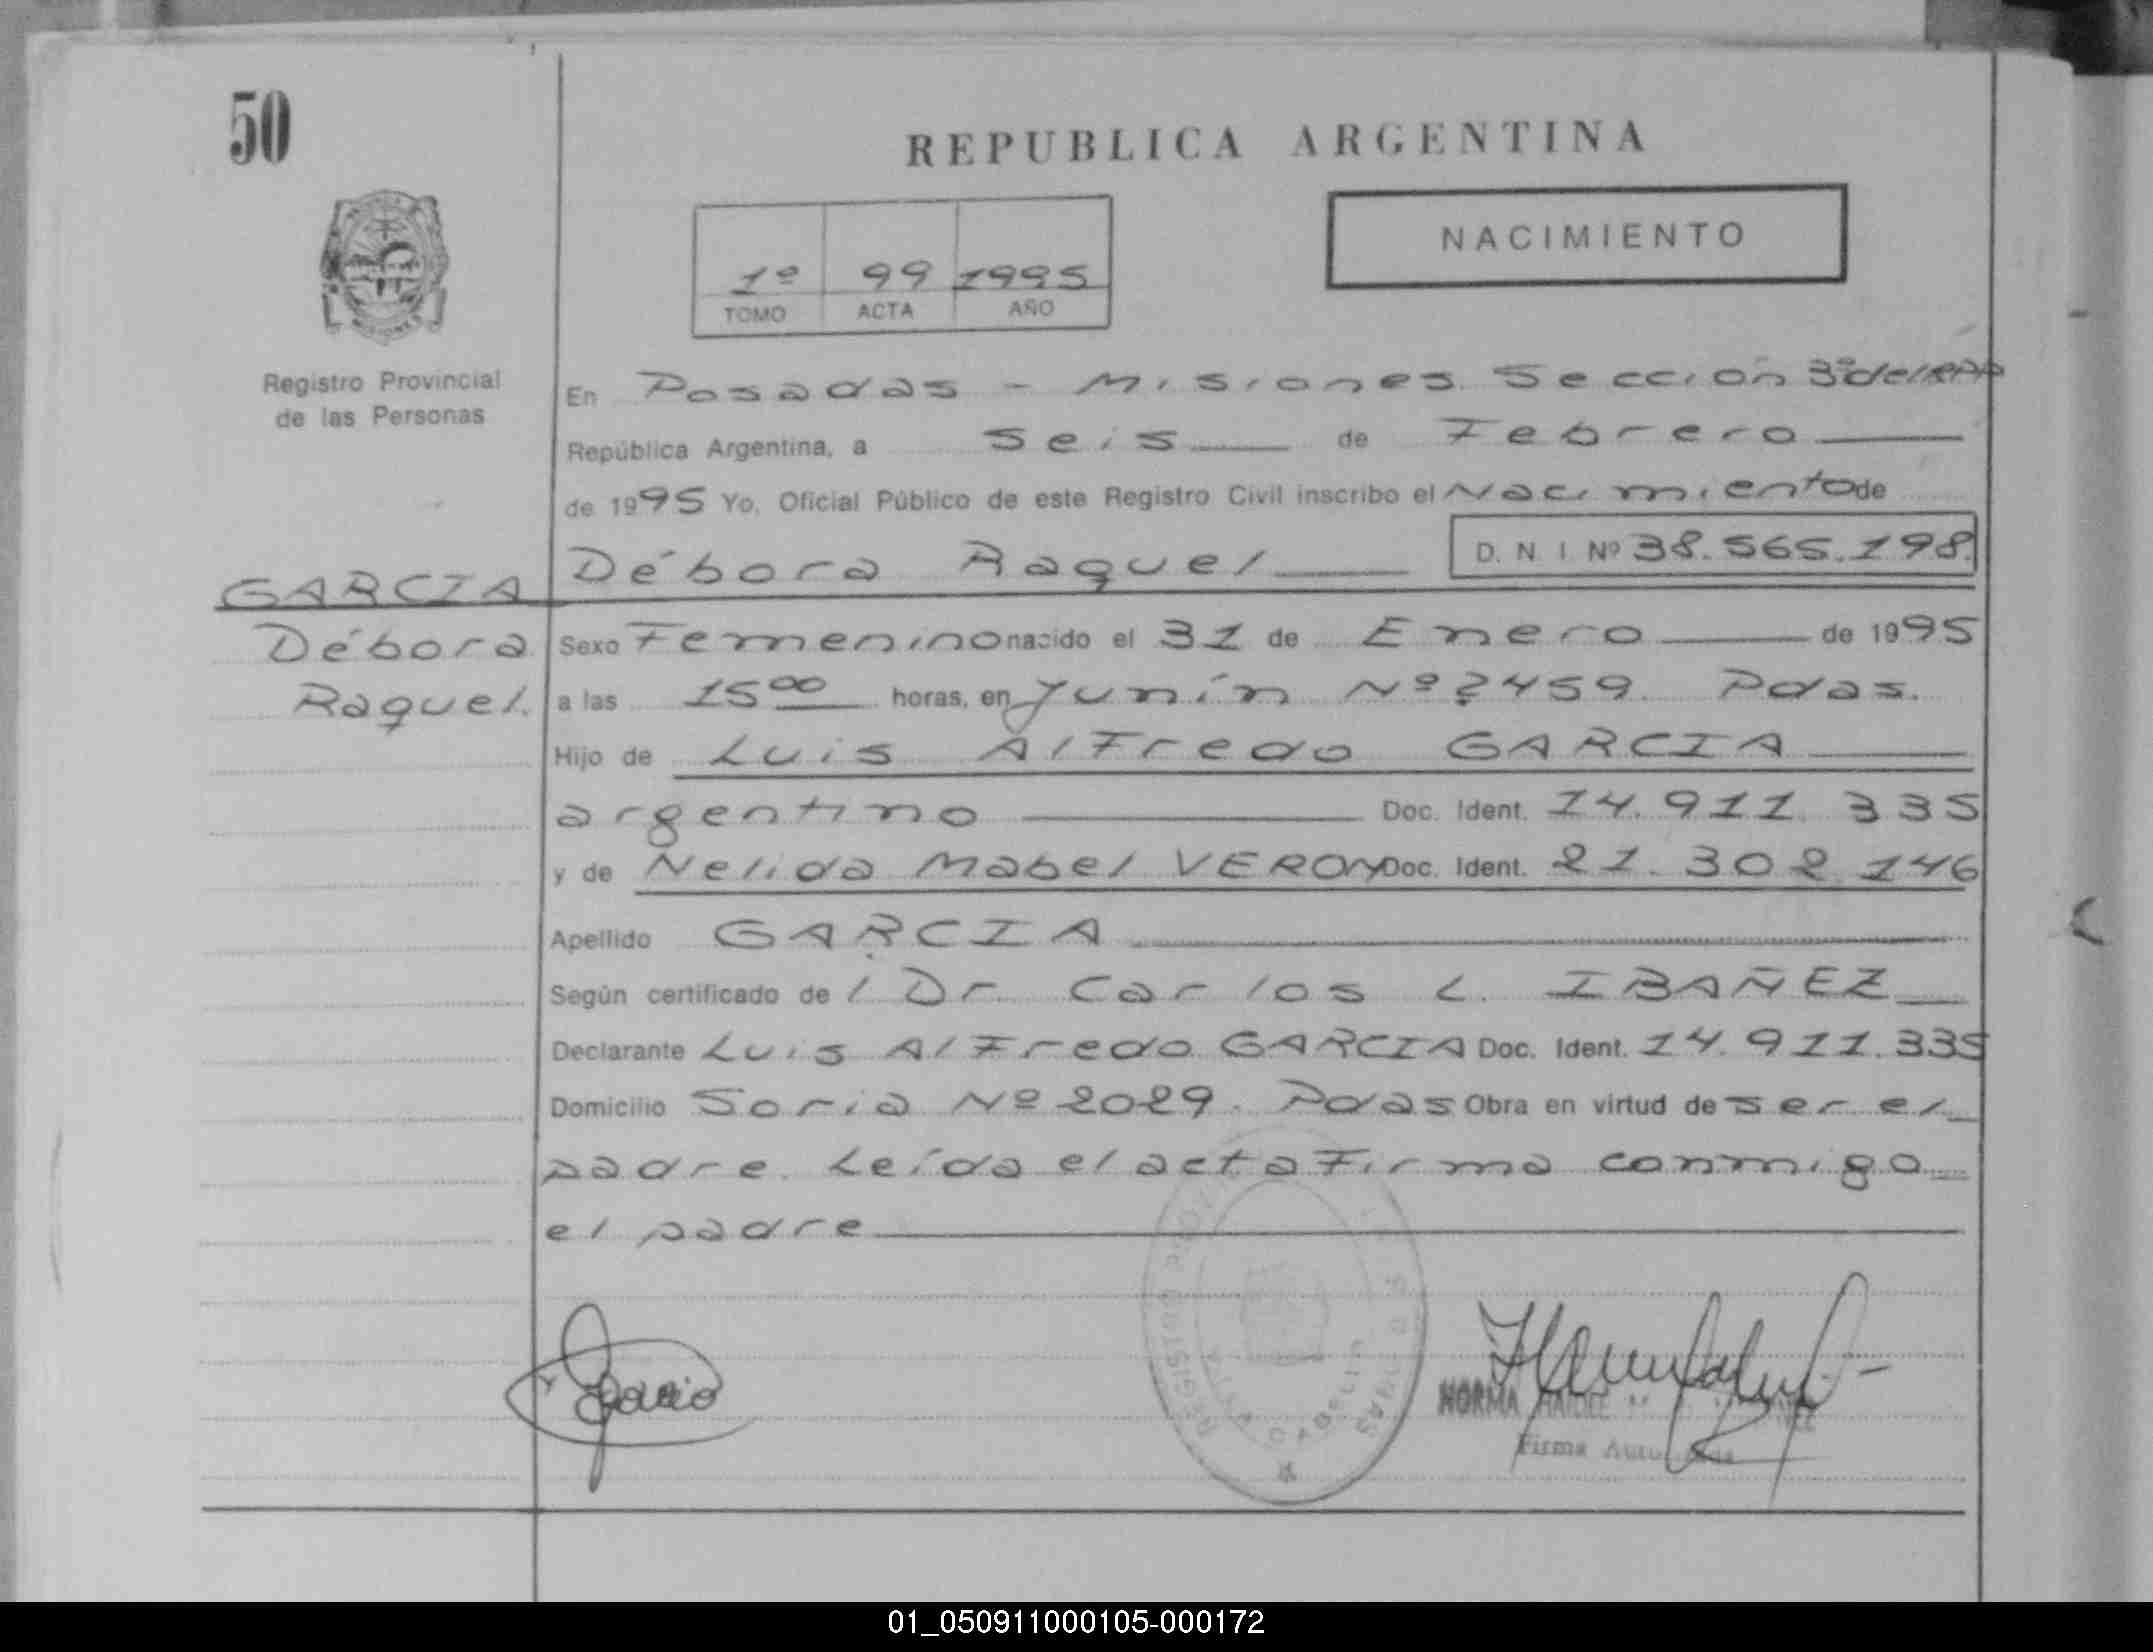 50
REPUBLICA ARGENTINA
NACIMIENTO
1º 99 1995
TOMO ACTA AÑO
Registro Provincial
de las Personas
En Posadas - Misiones Sección 3ª del RPP
República Argentina, a Seis de Febrero
de 1995 Yo, Oficial Público de este Registro Civil inscribo el Nacimiento de
Débora Raquel D. N. I. Nº 38.565.198.
GARCIA
Débora
Raquel.
Sexo Femenino nacido el 31 de Enero de 1995
a las 15 00 horas, en Junín Nº 2459. Pdas.
Hijo de Luis Alfredo GARCIA
argentino Doc. Ident. 14.911.335
y de Nelida Mabel VERON Doc. Ident. 21.302.146
Apellido GARCIA
Según certificado de l Dr. Carlos L. IBAÑEZ
Declarante Luis Alfredo GARCIA Doc. Ident. 14.911.335
Domicilio Soria Nº 2029. Pdas Obra en virtud de ser el
padre. Leída el acta firma conmigo
el padre
REGISTRO
NORMA HAIDEE
Firma
01_050911000105-000172